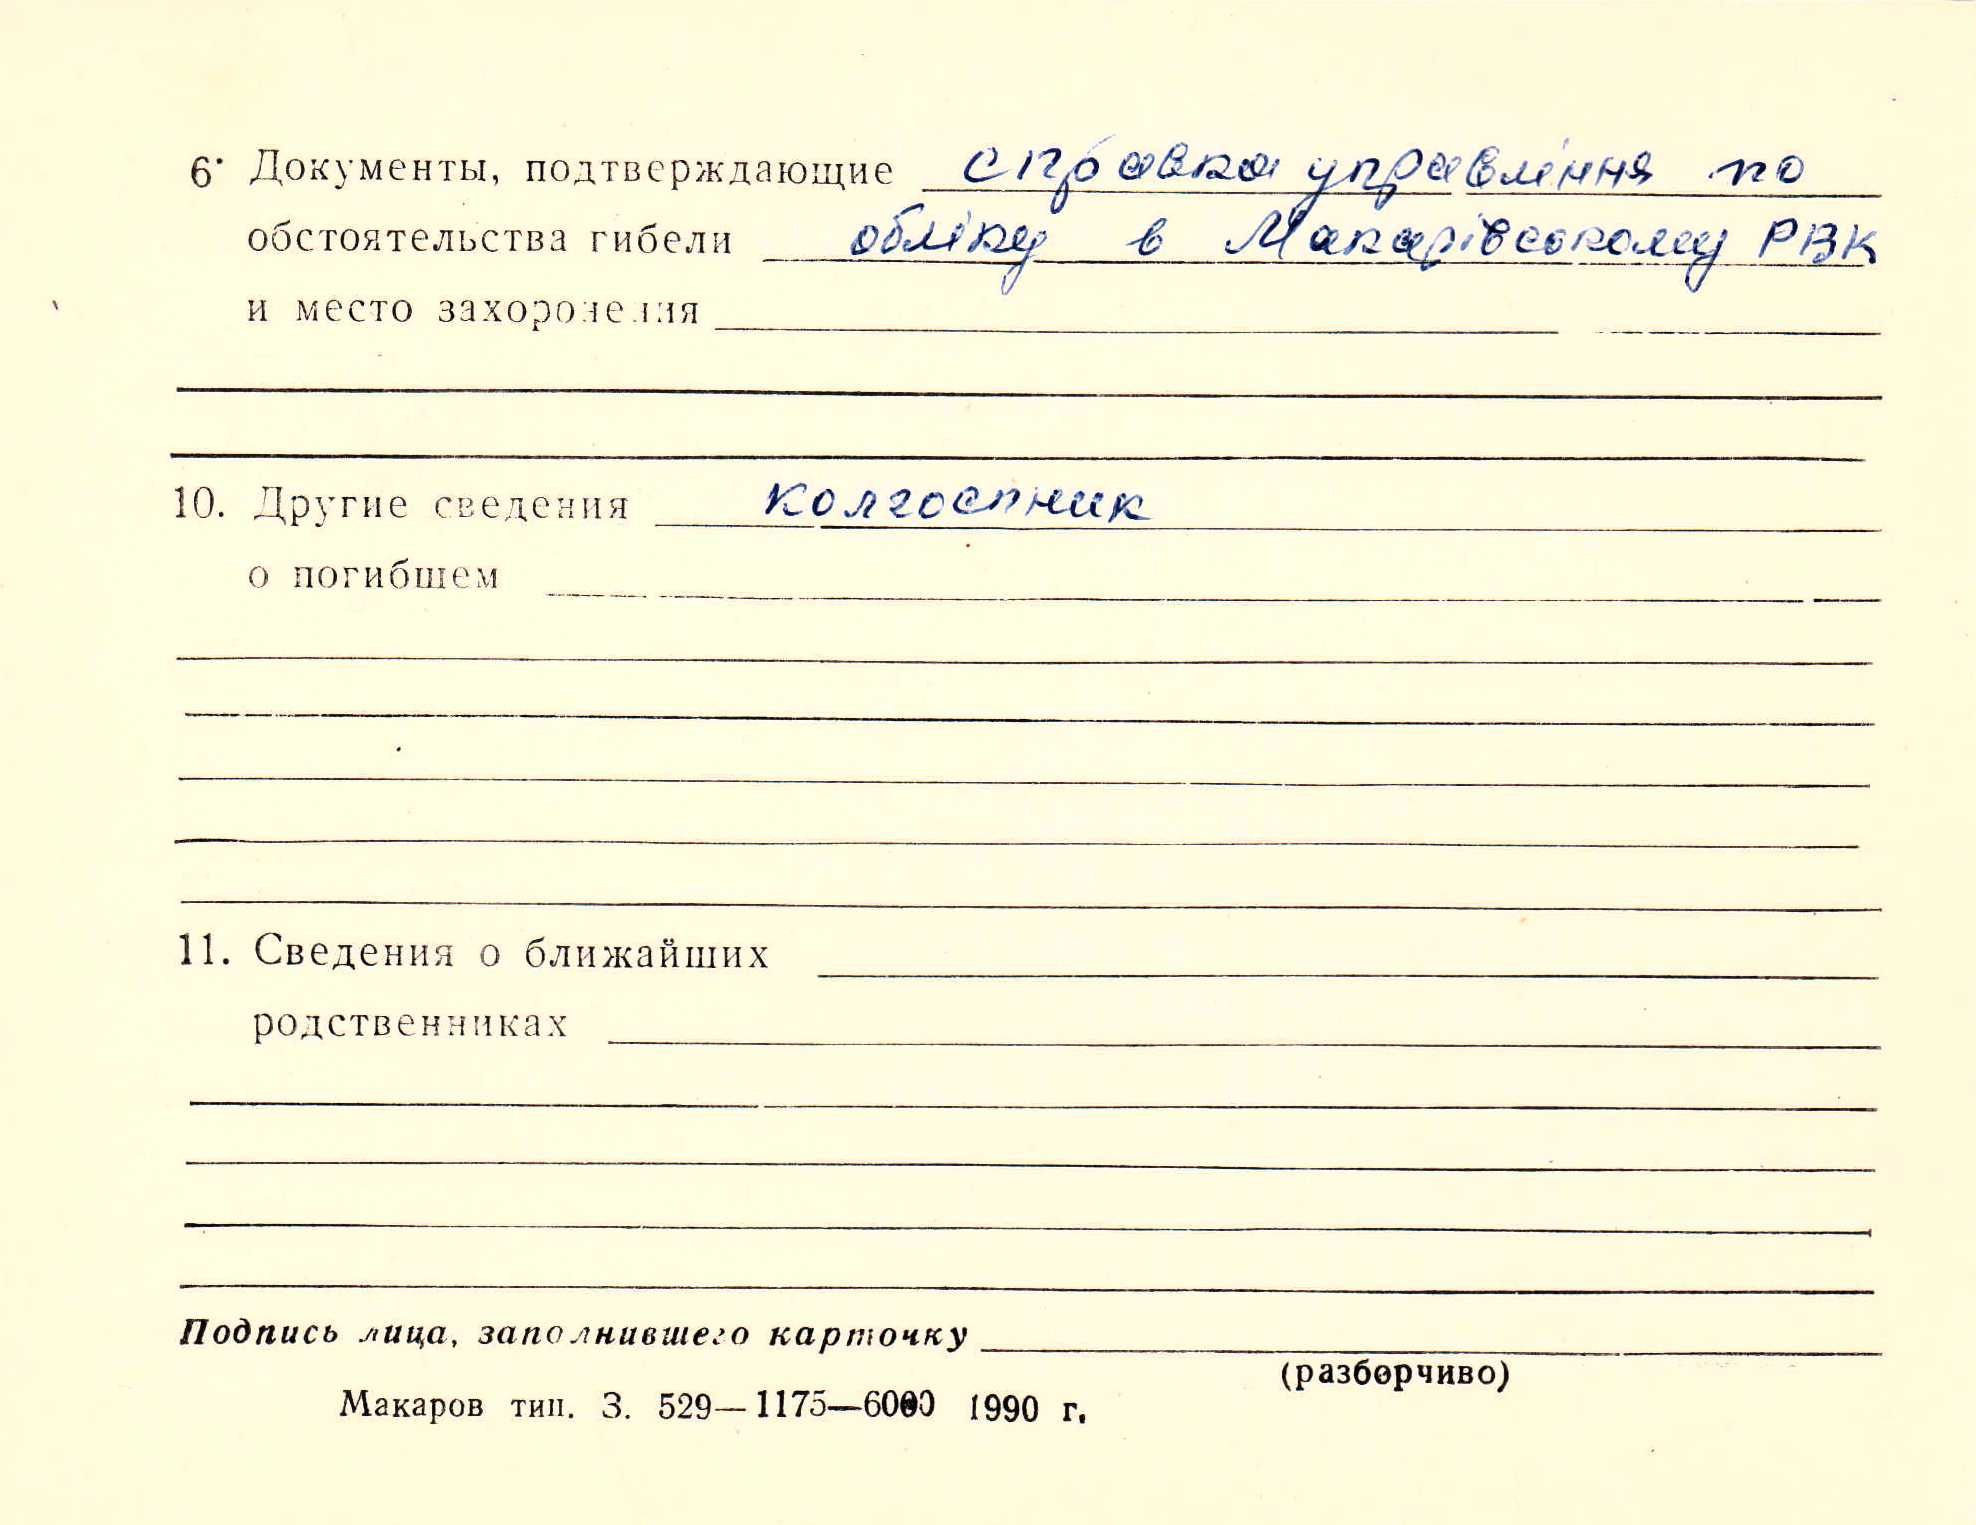 6. Документы, подтверждающие справка управління по
обстоятельства гибели обліку в Макарівському РВК
и место захоронения
10. Другие сведения колгоспник
о погибшем
11. Сведения о ближайших
родственниках
Подпись лица, заполнившего карточку
(разборчиво)
Макаров тип. З. 529—1175—6000 1990 г.